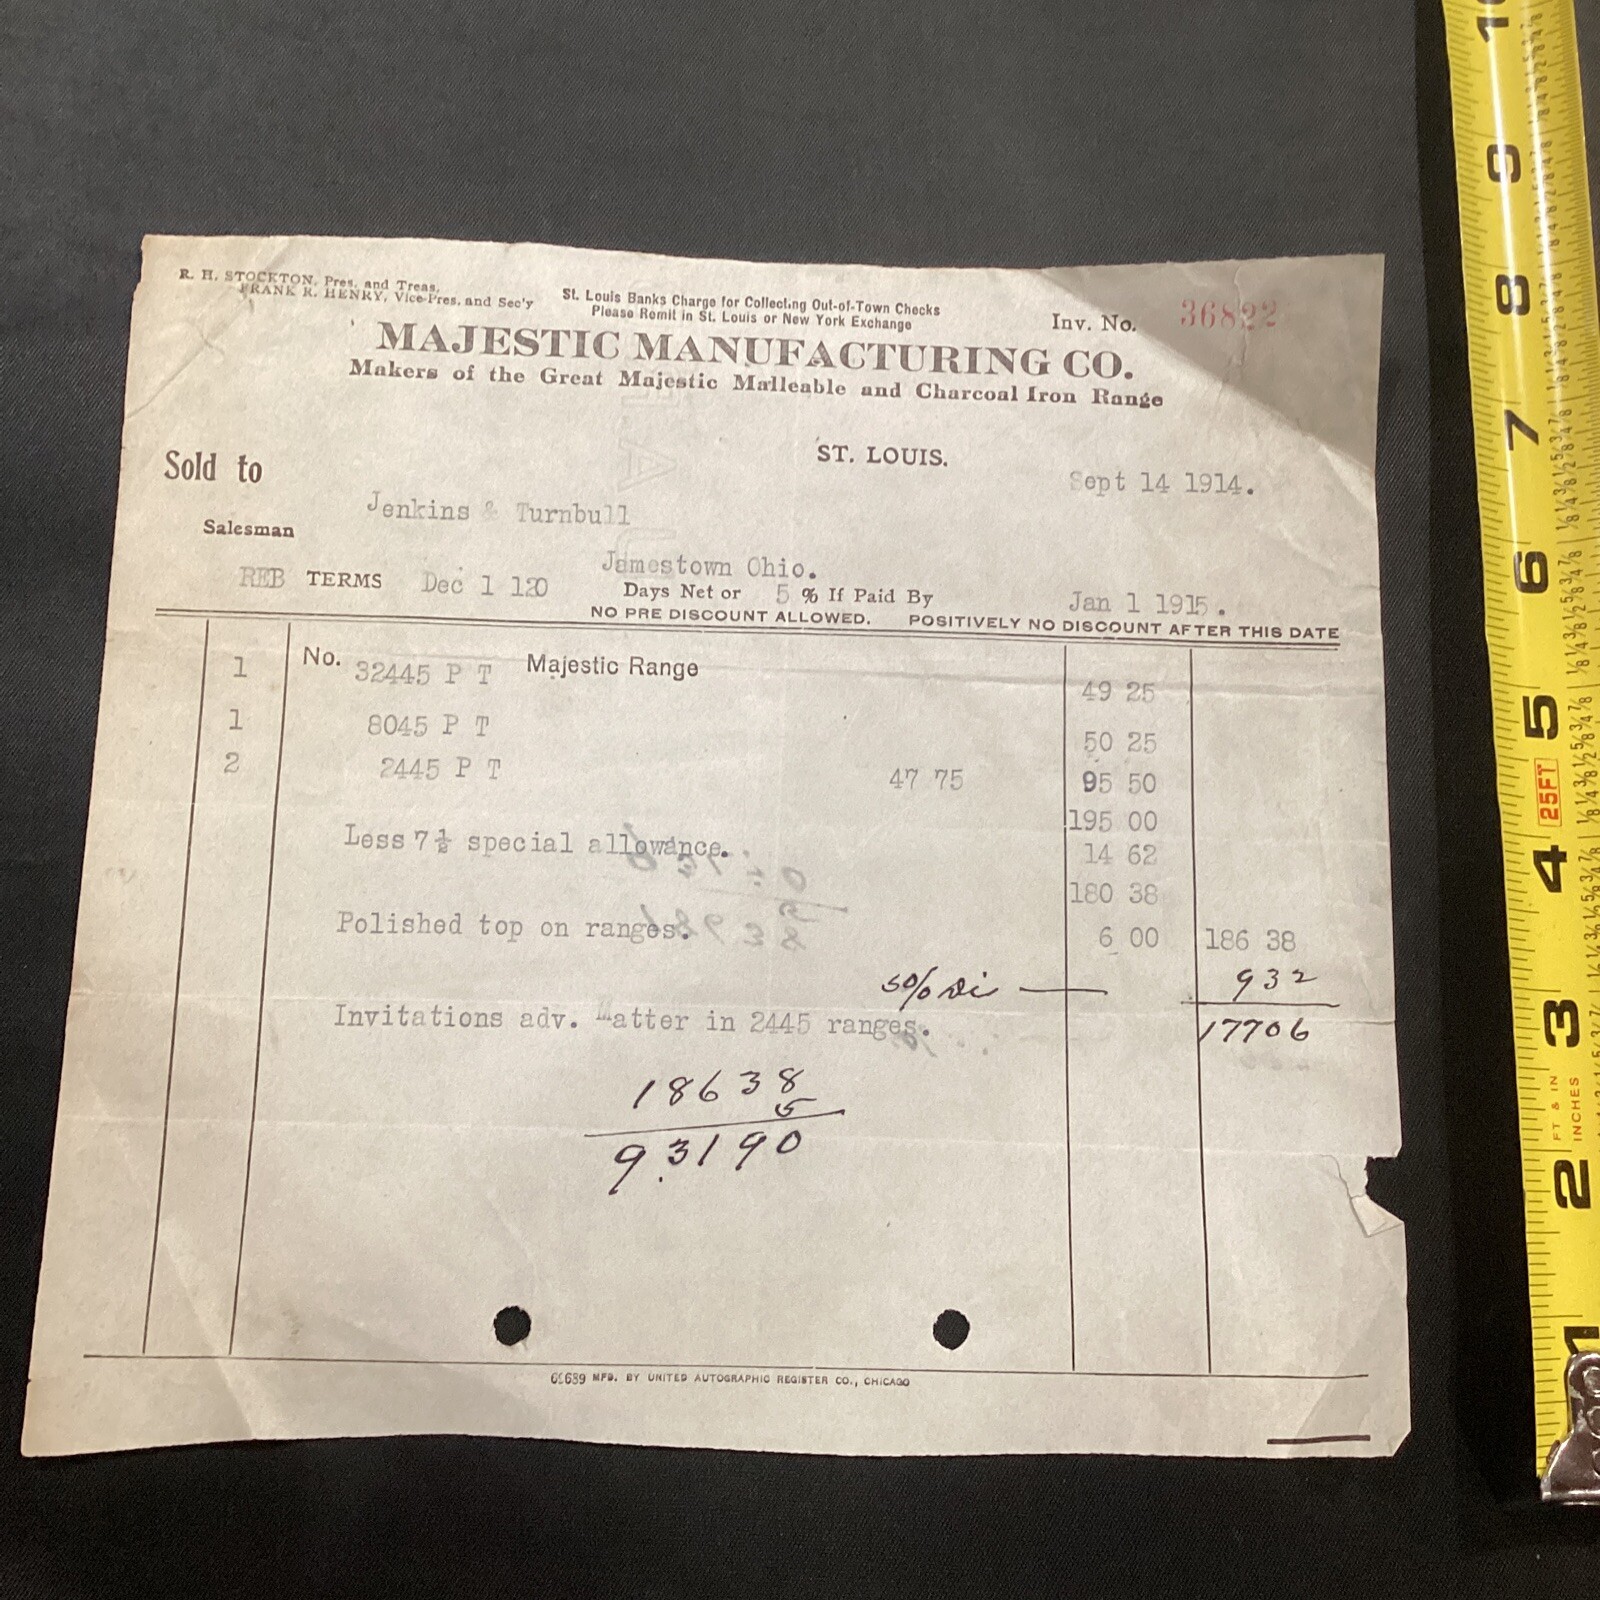 R. H. STOCKTON, Pres. and Treas.
FRANK R. HENRY, Vice-Pres. and Sec'y
St. Louis Banks Charge for Collecting Out-of-Town Checks
Please Remit in St. Louis or New York Exchange
Inv. No. 36822
MAJESTIC MANUFACTURING CO.
Makers of the Great Majestic Malleable and Charcoal Iron Range
ST. LOUIS.
Sept 14 1914.
Sold to
Jenkins & Turnbull
Salesman
Jamestown Ohio.
REB TERMS Dec 1 120 Days Net or 5 % If Paid By Jan 1 1915.
NO PRE DISCOUNT ALLOWED. POSITIVELY NO DISCOUNT AFTER THIS DATE
1 No. 32445 P T Majestic Range 49 25
1 8045 P T 50 25
2 2445 P T 47 75 95 50
195 00
Less 7½ special allowance. 14 62
180 38
Polished top on ranges. 6 00 186 38
5% Di 932
17706
Invitations adv. Matter in 2445 ranges.
18638
5
9.3190
6S689 MFD. BY UNITED AUTOGRAPHIC REGISTER CO., CHICAGO
10
9
8
7
6
5
25FT
4
3
FT & IN
INCHES
2
1